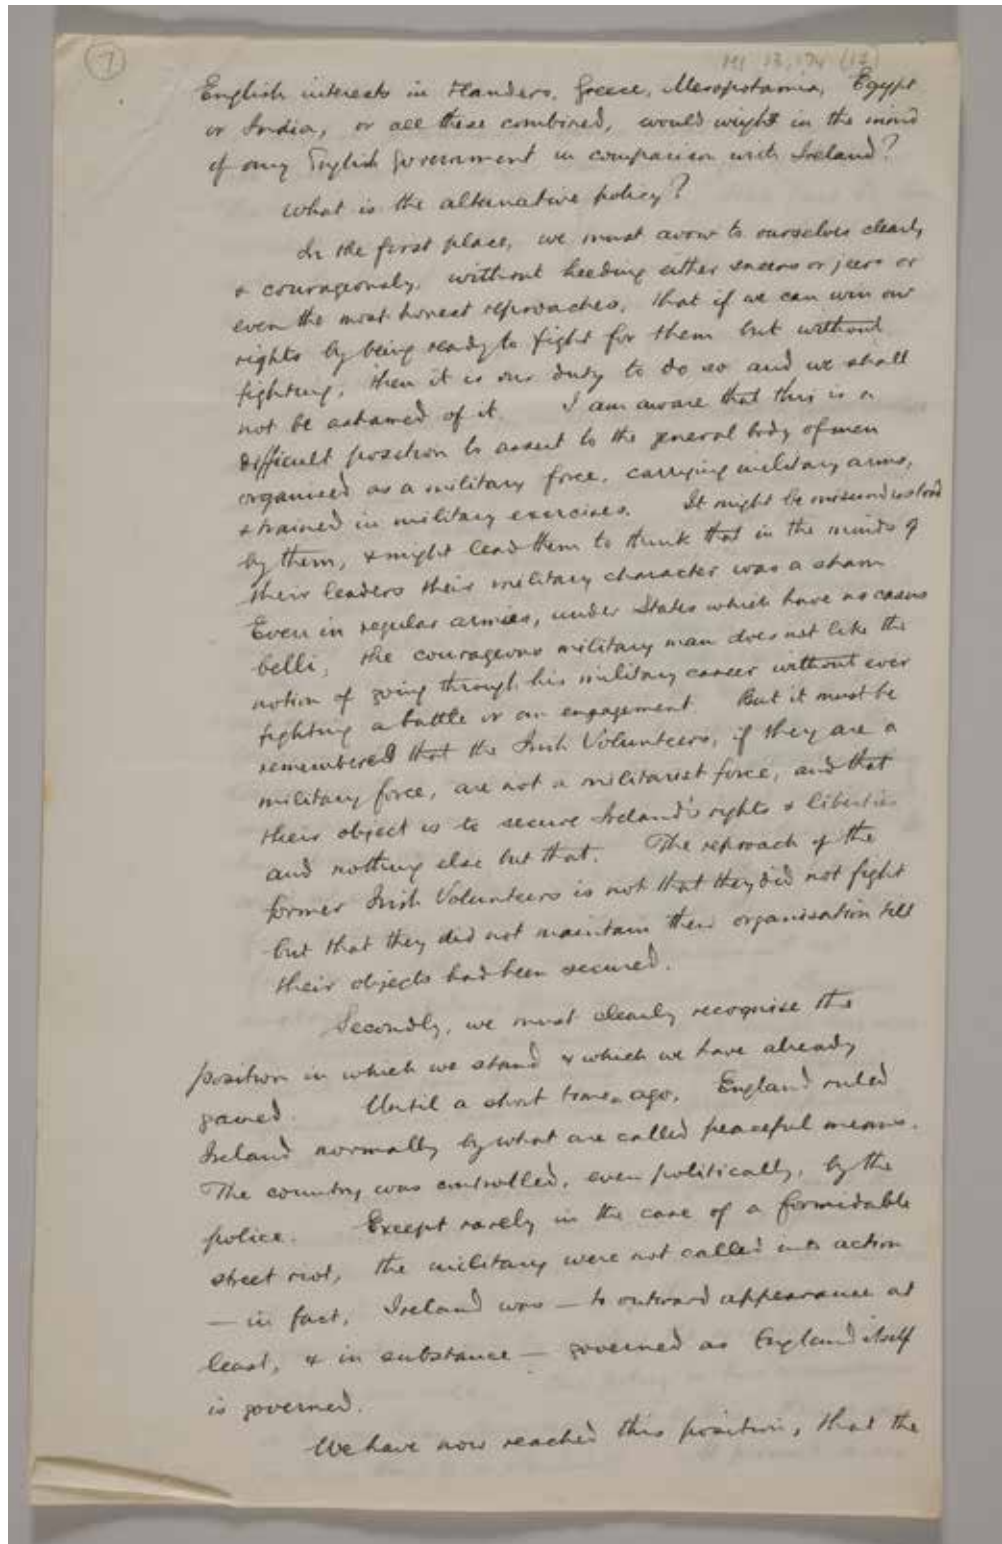 7
MS 13,174 (12)
English interests in Flanders, Greece, Mesopotamia, Egypt
or India, or all these combined, would weigh in the mind
of any English government in comparison with Ireland?
What is the alternative policy?
In the first place, we must avow to ourselves clearly
& courageously, without heeding either sneers or jeers or
even the most honest reproaches, that if we can win our
rights by being ready to fight for them but without
fighting, then it is our duty to do so and we shall
not be ashamed of it. I am aware that this is a
difficult position to assert to the general body of men
organised as a military force, carrying military arms,
& trained in military exercises. It might be misunderstood
by them, & might lead them to think that in the minds of
their leaders their military character was a sham.
Even in regular armies, under States which have no casus
belli, the courageous military man does not like the
notion of going through his military career without ever
fighting a battle or an engagement. But it must be
remembered that the Irish Volunteers, if they are a
military force, are not a militarist force, and that
their object is to secure Ireland's rights & liberties
and nothing else but that. The reproach of the
former Irish Volunteers is not that they did not fight
but that they did not maintain their organisation till
their objects had been secured.
Secondly, we must clearly recognise the
position in which we stand & which we have already
gained. Until a short time ago, England ruled
Ireland normally by what are called peaceful means.
The country was controlled, even politically, by the
police. Except rarely in the case of a formidable
street riot, the military were not called into action
— in fact, Ireland was — to outward appearance at
least, & in substance — governed as England itself
is governed.
We have now reached this position, that the